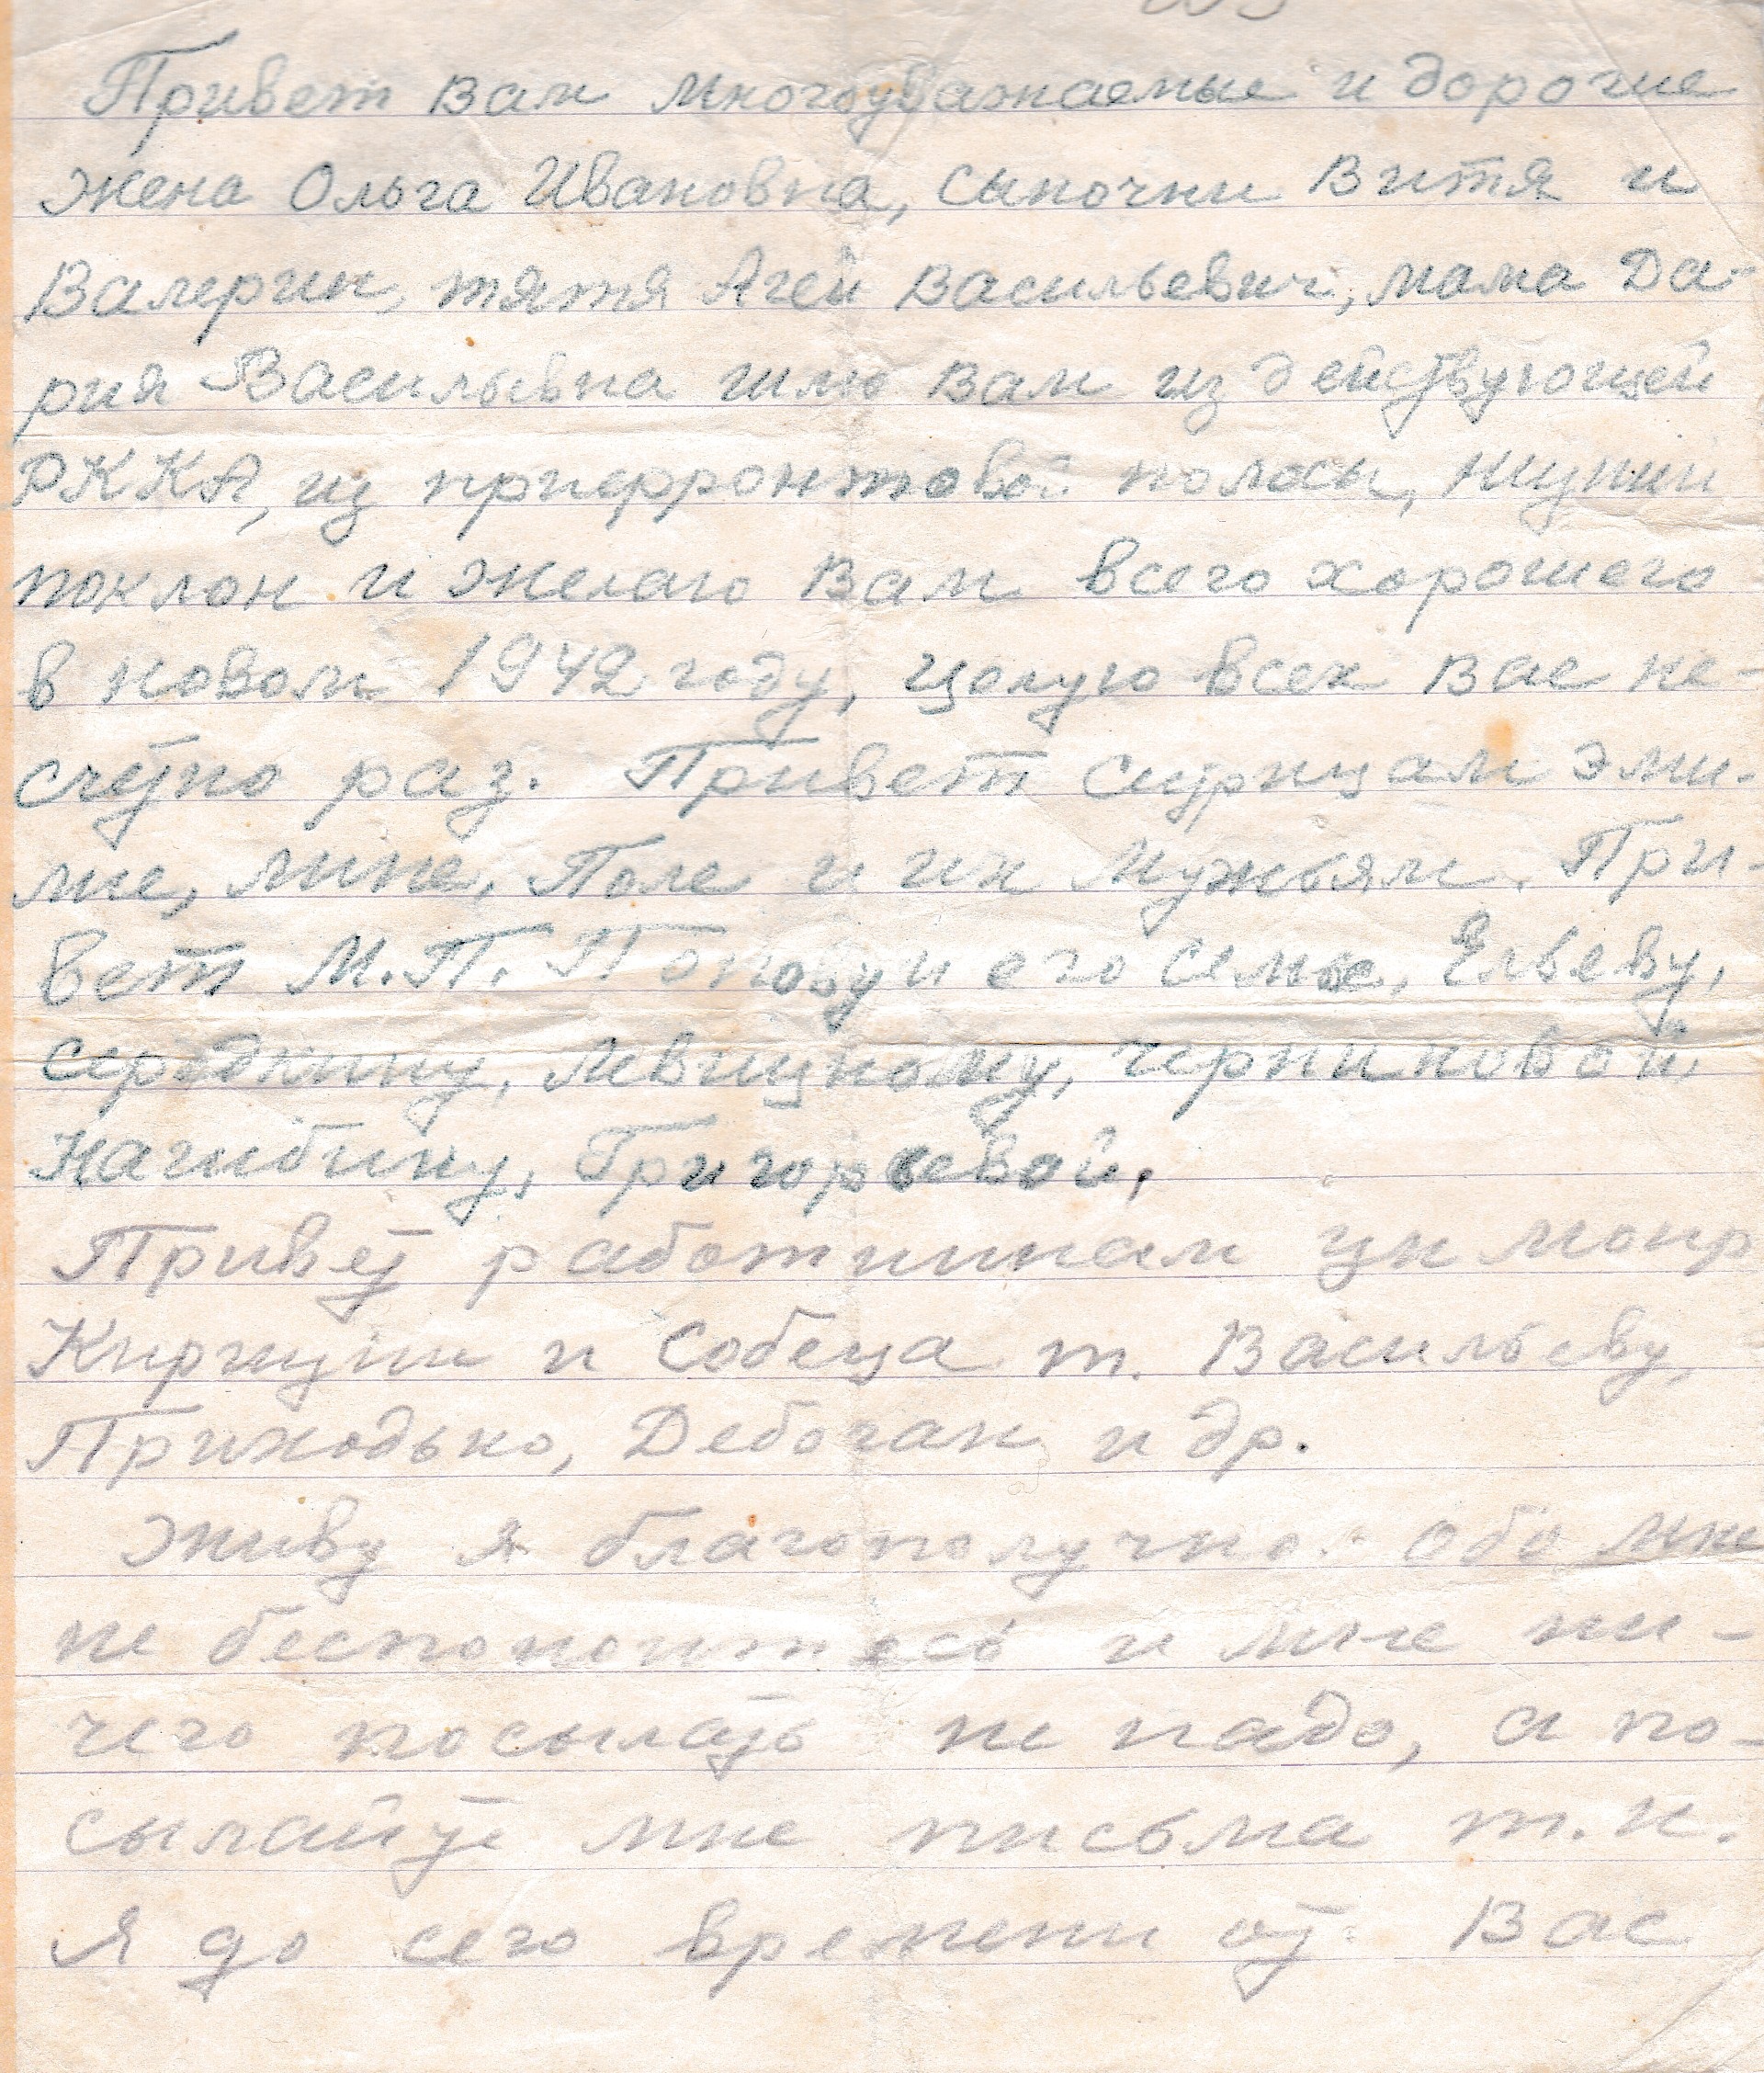 Привет Вам многоуважаемые и дорогие
жена Ольга Ивановна, сыночки Витя и
Валерик, тятя Агей Васильевич, мама Да-
рия Васильевна шлю Вам из действующей
РККА, из прифронтовой полосы, низкий
поклон и желаю Вам всего хорошего
в новом 1942 году, целую всех Вас не-
счетно раз. Привет сестрицам Эми-
лие, Лине, Поле и их мужьям. При-
вет М.П. Попову и его семье, Ельеву,
Середкину, Левицкому, Черниковой,
Нагибину, Григорьевой,
Привет работникам цк мопр
Киргизии и Собеса т. Васильеву,
Приходько, Дебочан и др.
Живу я благополучно. Обо мне
не беспокоитесь и мне ни-
чего посылать не надо, а по-
сылайте мне письма т.к.
Я до сего времени от Вас